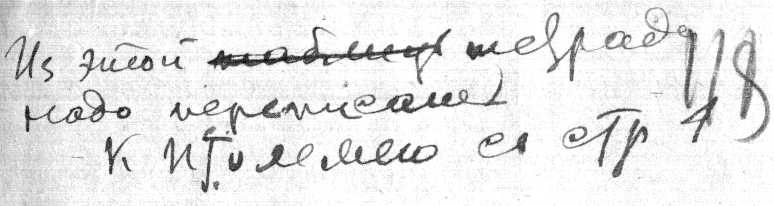 Из этой ~~таблицы~~ тетради
надо переписать
К Птолемею со стр 118